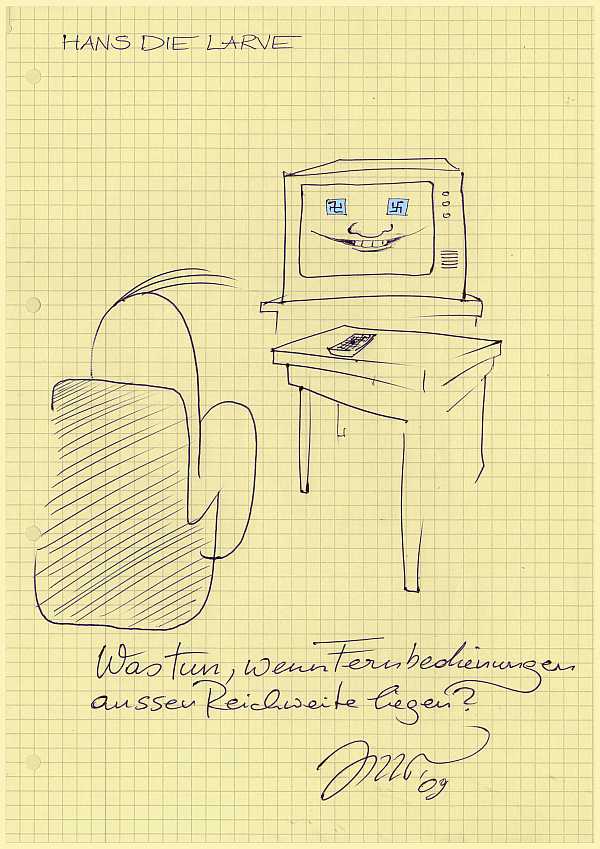 HANS DIE LARVE
Was tun, wenn Fernbedienungen
aussen Reichweite liegen?
'09